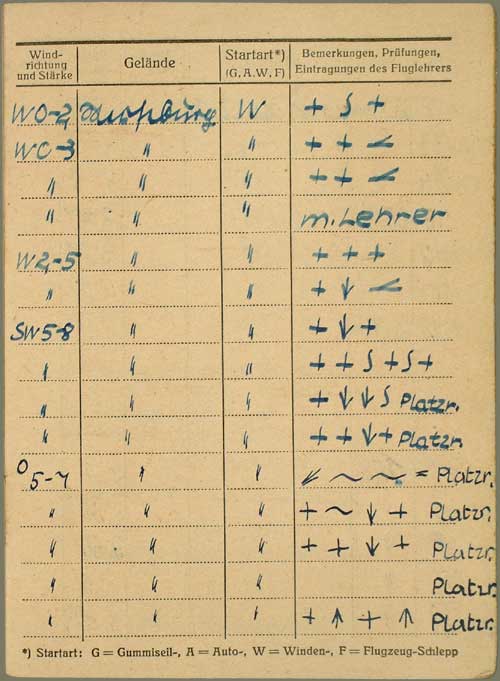 Wind- richtung und Stärke | Gelände | Startart*) (G, A, W, F) | Bemerkungen, Prüfungen, Eintragungen des Fluglehrers
W 0-2 W + ∫ +
W 0-3 〃 〃 + + ∠
〃 〃 〃 + + ∠
〃 〃 〃 m. Lehrer
W 2-5 〃 〃 + + +
〃 〃 〃 + ↓ ∠
SW 5-8 〃 〃 + ↓ +
〃 〃 〃 + + ∫ + ∫ +
〃 〃 〃 + ↓ ↓ ∫ Platzr.
〃 〃 〃 + + ↓ + Platzr.
O 5-7 〃 〃 ↙ ~ ~ = Platzr.
〃 〃 〃 + ~ ↓ + Platzr.
〃 〃 〃 + + ↓ + Platzr.
〃 〃 〃 Platzr.
〃 〃 〃 + ↑ + ↑ Platzr.
*) Startart: G = Gummiseil-, A = Auto-, W = Winden-, F = Flugzeug-Schlepp